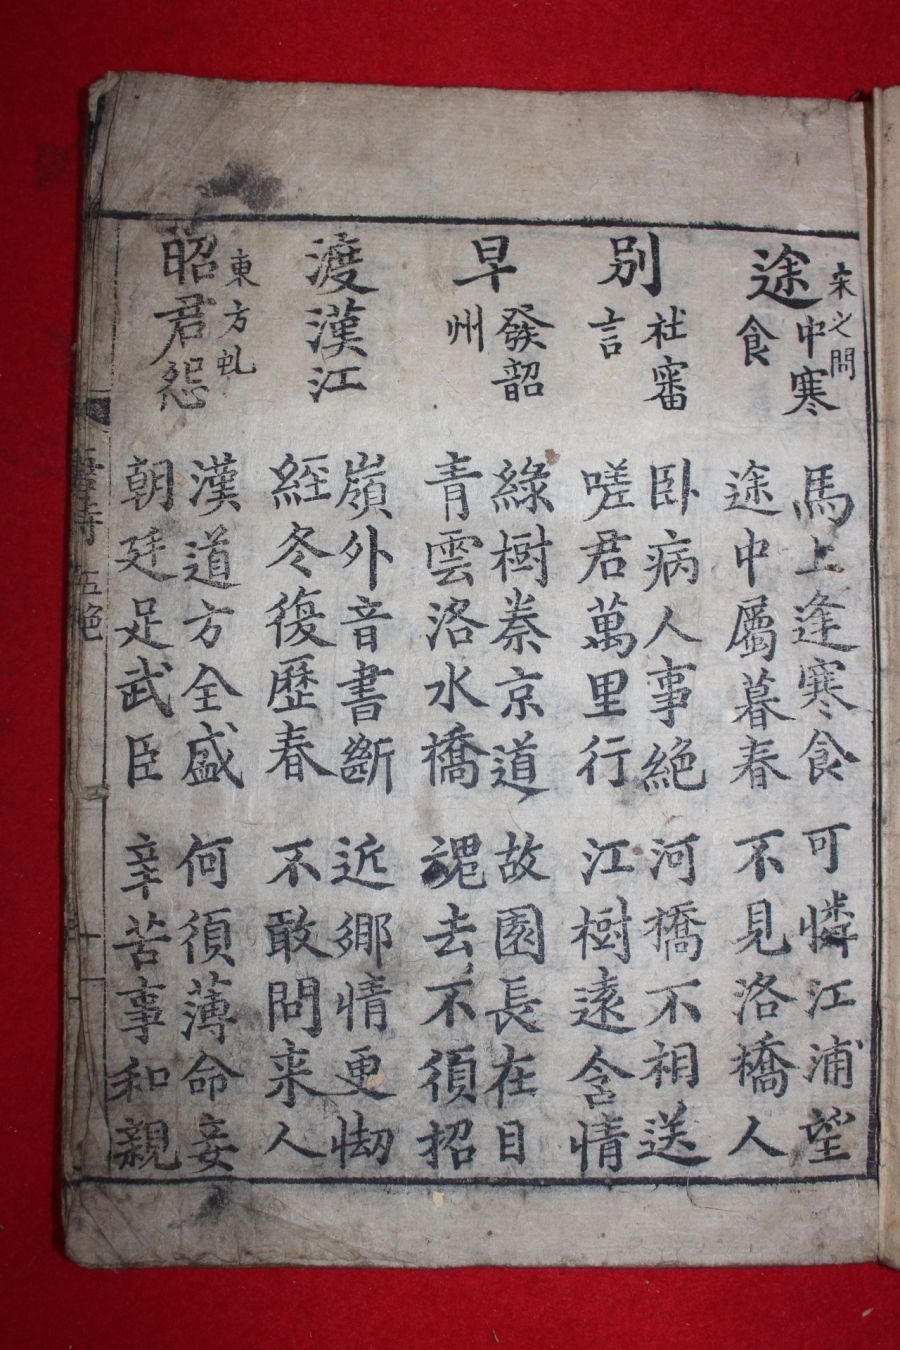 途中寒食
宋之問
馬上逢寒食 可憐江浦望
途中屬暮春 不見洛橋人
別社審言
卧病人事絶 河橋不相送
嗟君萬里行 江樹遠含情
早發韶州
綠樹秦京道 故園長在目
青雲洛水橋 魂去不須招
渡漢江
嶺外音書斷 近鄉情更怯
經冬復歷春 不敢問来人
昭君怨
東方虬
漢道方全盛 何須薄命妾
朝廷足武臣 辛苦事和親
五絶